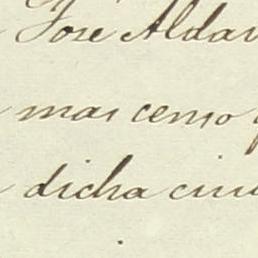 José Aldav
mas censo q
dicha ciu